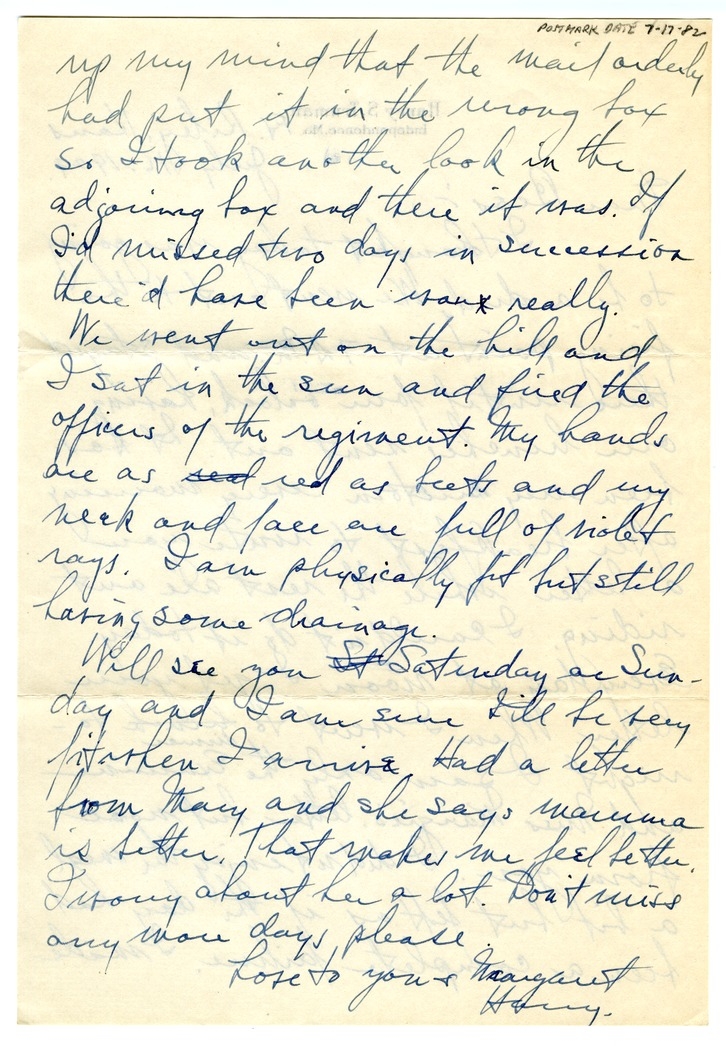 POSTMARK DATE 7-17-82
up my mind that the mail orderly
had put it in the wrong box
so I took another look in the
adjoining box and there it was. If
I'd missed two days in succession
there'd have been really.
We went out on the hill and
I sat in the sun and fired the
officers of the regiment. My hands
are as red as beets and my
neck and face are full of violet
rays. I am physically fit but still
having some drainage.
Will see you St Saturday or Sun-
day and I am sure I'll be very
fit when I arrive Had a letter
from Mary and she says mamma
is better. That makes me feel better.
I worry about her a lot. Don't miss
any more days please.
Love to you & Margaret
Harry.